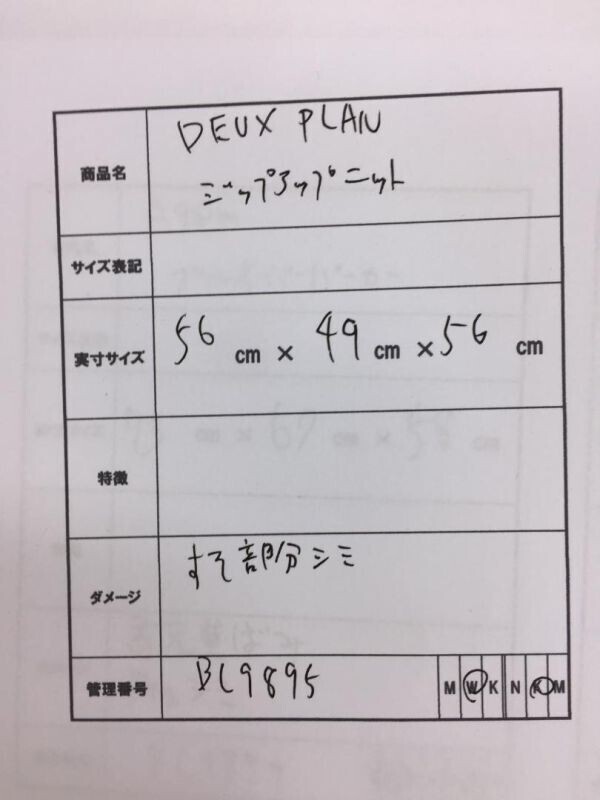 商品名 DEUX PLAN
ジップアップニット
サイズ表記
実寸サイズ 56 cm × 49 cm × 56 cm
特徴
ダメージ すそ部分シミ
管理番号 BC9895 M W K N K M